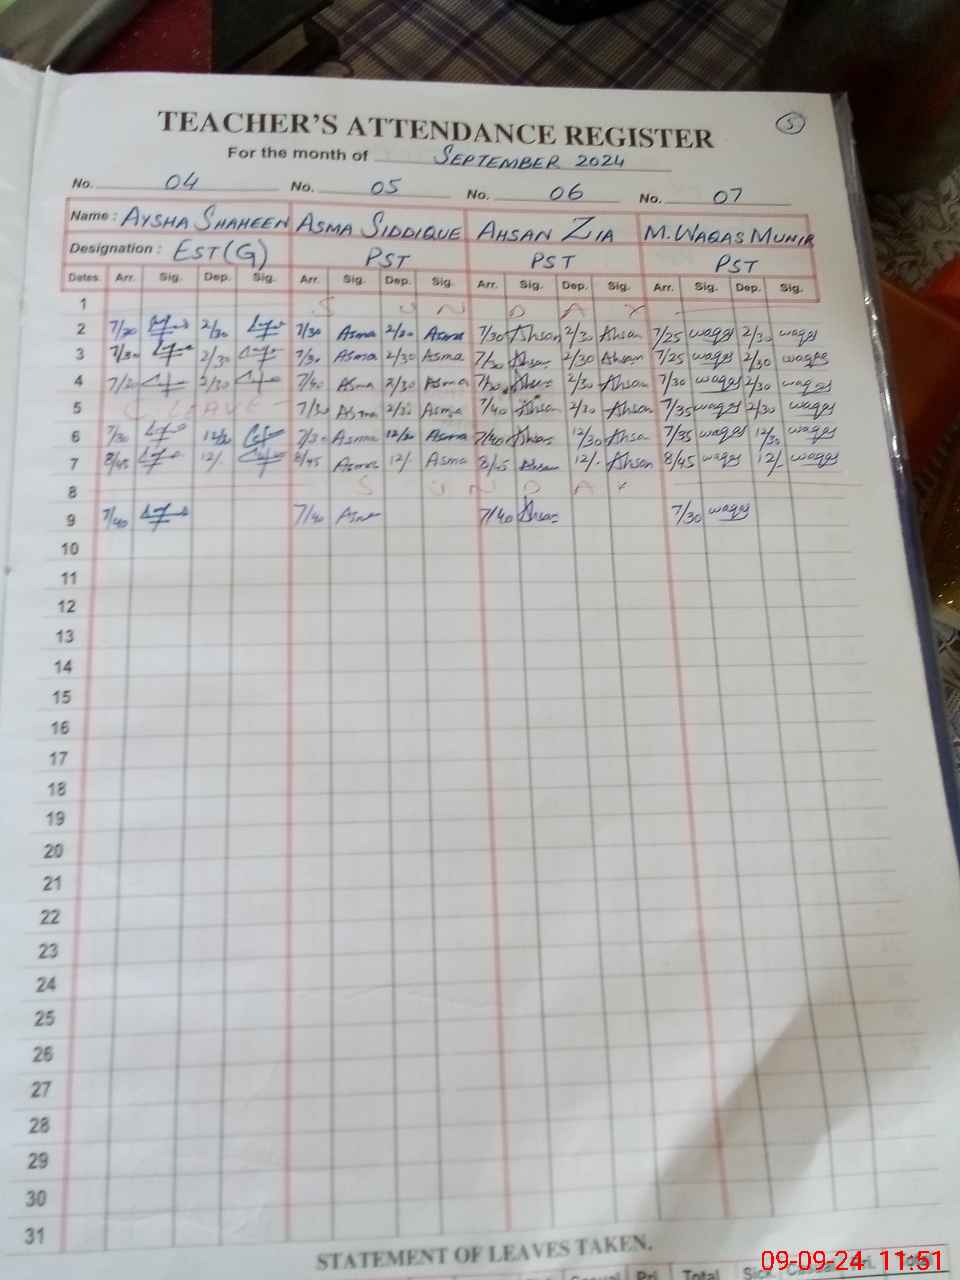 TEACHER'S ATTENDANCE REGISTER
5
For the month of SEPTEMBER 2024
No. 04 No. 05 No. 06 No. 07
Name : AYSHA SHAHEEN ASMA SIDDIQUE AHSAN ZIA M. WAQAS MUNIR
Designation : EST(G) PST PST PST
Dates Arr. Sig. Dep. Sig. Arr. Sig. Dep. Sig. Arr. Sig. Dep. Sig. Arr. Sig. Dep. Sig.
1 S U N D A Y
2 7/20 2/30 7/30 Asma 2/30 Asma 7/30 Ahsan 2/30 Ahsan 7/25 waqas 2/30 waqas
3 7/30 2/30 7/30 Asma 2/30 Asma 7/30 Ahsan 2/30 Ahsan 7/25 waqas 2/30 waqas
4 7/20 2/30 7/40 Asma 2/30 Asma 7/30 Ahsan 2/30 Ahsan 7/30 waqas 2/30 waqas
5 C. LEAVE 7/30 Asma 2/30 Asma 7/40 Ahsan 2/30 Ahsan 7/35 waqas 2/30 waqas
6 7/30 12/30 7/30 Asma 12/30 Asma 7/40 Ahsan 12/30 Ahsan 7/35 waqas 12/30 waqas
7 8/45 12/. 8/45 Asma 12/. Asma 8/45 Ahsan 12/. Ahsan 8/45 waqas 12/. waqas
8 S U N D A Y
9 7/40 7/40 Asma 7/40 Ahsan 7/30 waqas
10
11
12
13
14
15
16
17
18
19
20
21
22
23
24
25
26
27
28
29
30
31
STATEMENT OF LEAVES TAKEN.
Casual Pri. Total Sick Casual Pri. Total
09-09-24 11:51